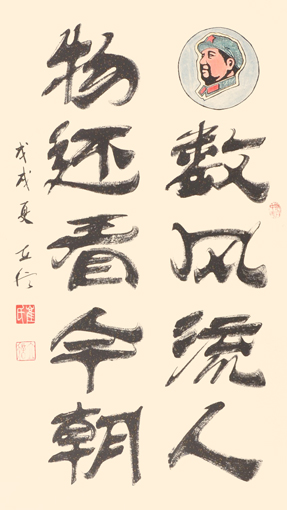 数风流人
物还看今朝
戊戌夏